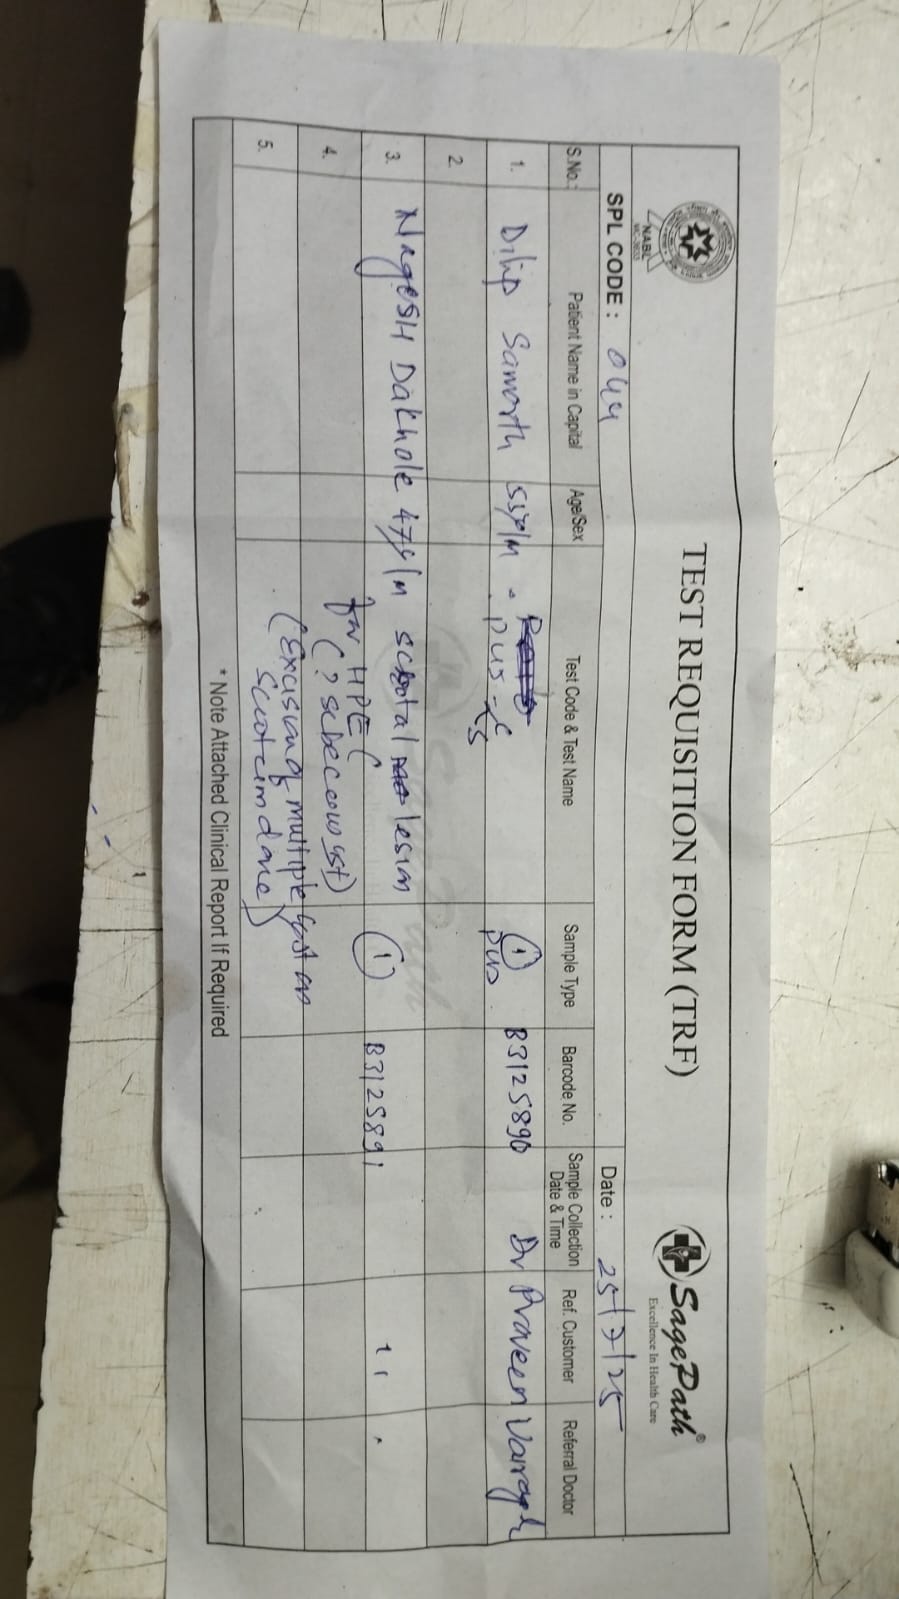 TEST REQUISITION FORM (TRF)
SagePath®
Excellence In Health Care
NABL
SPL CODE : 044
Date : 25/7/25
S.No.: Patient Name in Capital Age/Sex Test Code & Test Name Sample Type Barcode No. Sample Collection Date & Time Ref. Customer Referral Doctor
1. Dilip Samarth 55y/M - pus - c/s ① pus B3125890 Dr Praveen
2.
3. Nagesh Dakhole 47y/M scrotal lesion ① B3125891
for HPE
4. (? sebaceous cyst)
(Excision of multiple cyst on
5. scrotum done)
* Note Attached Clinical Report If Required